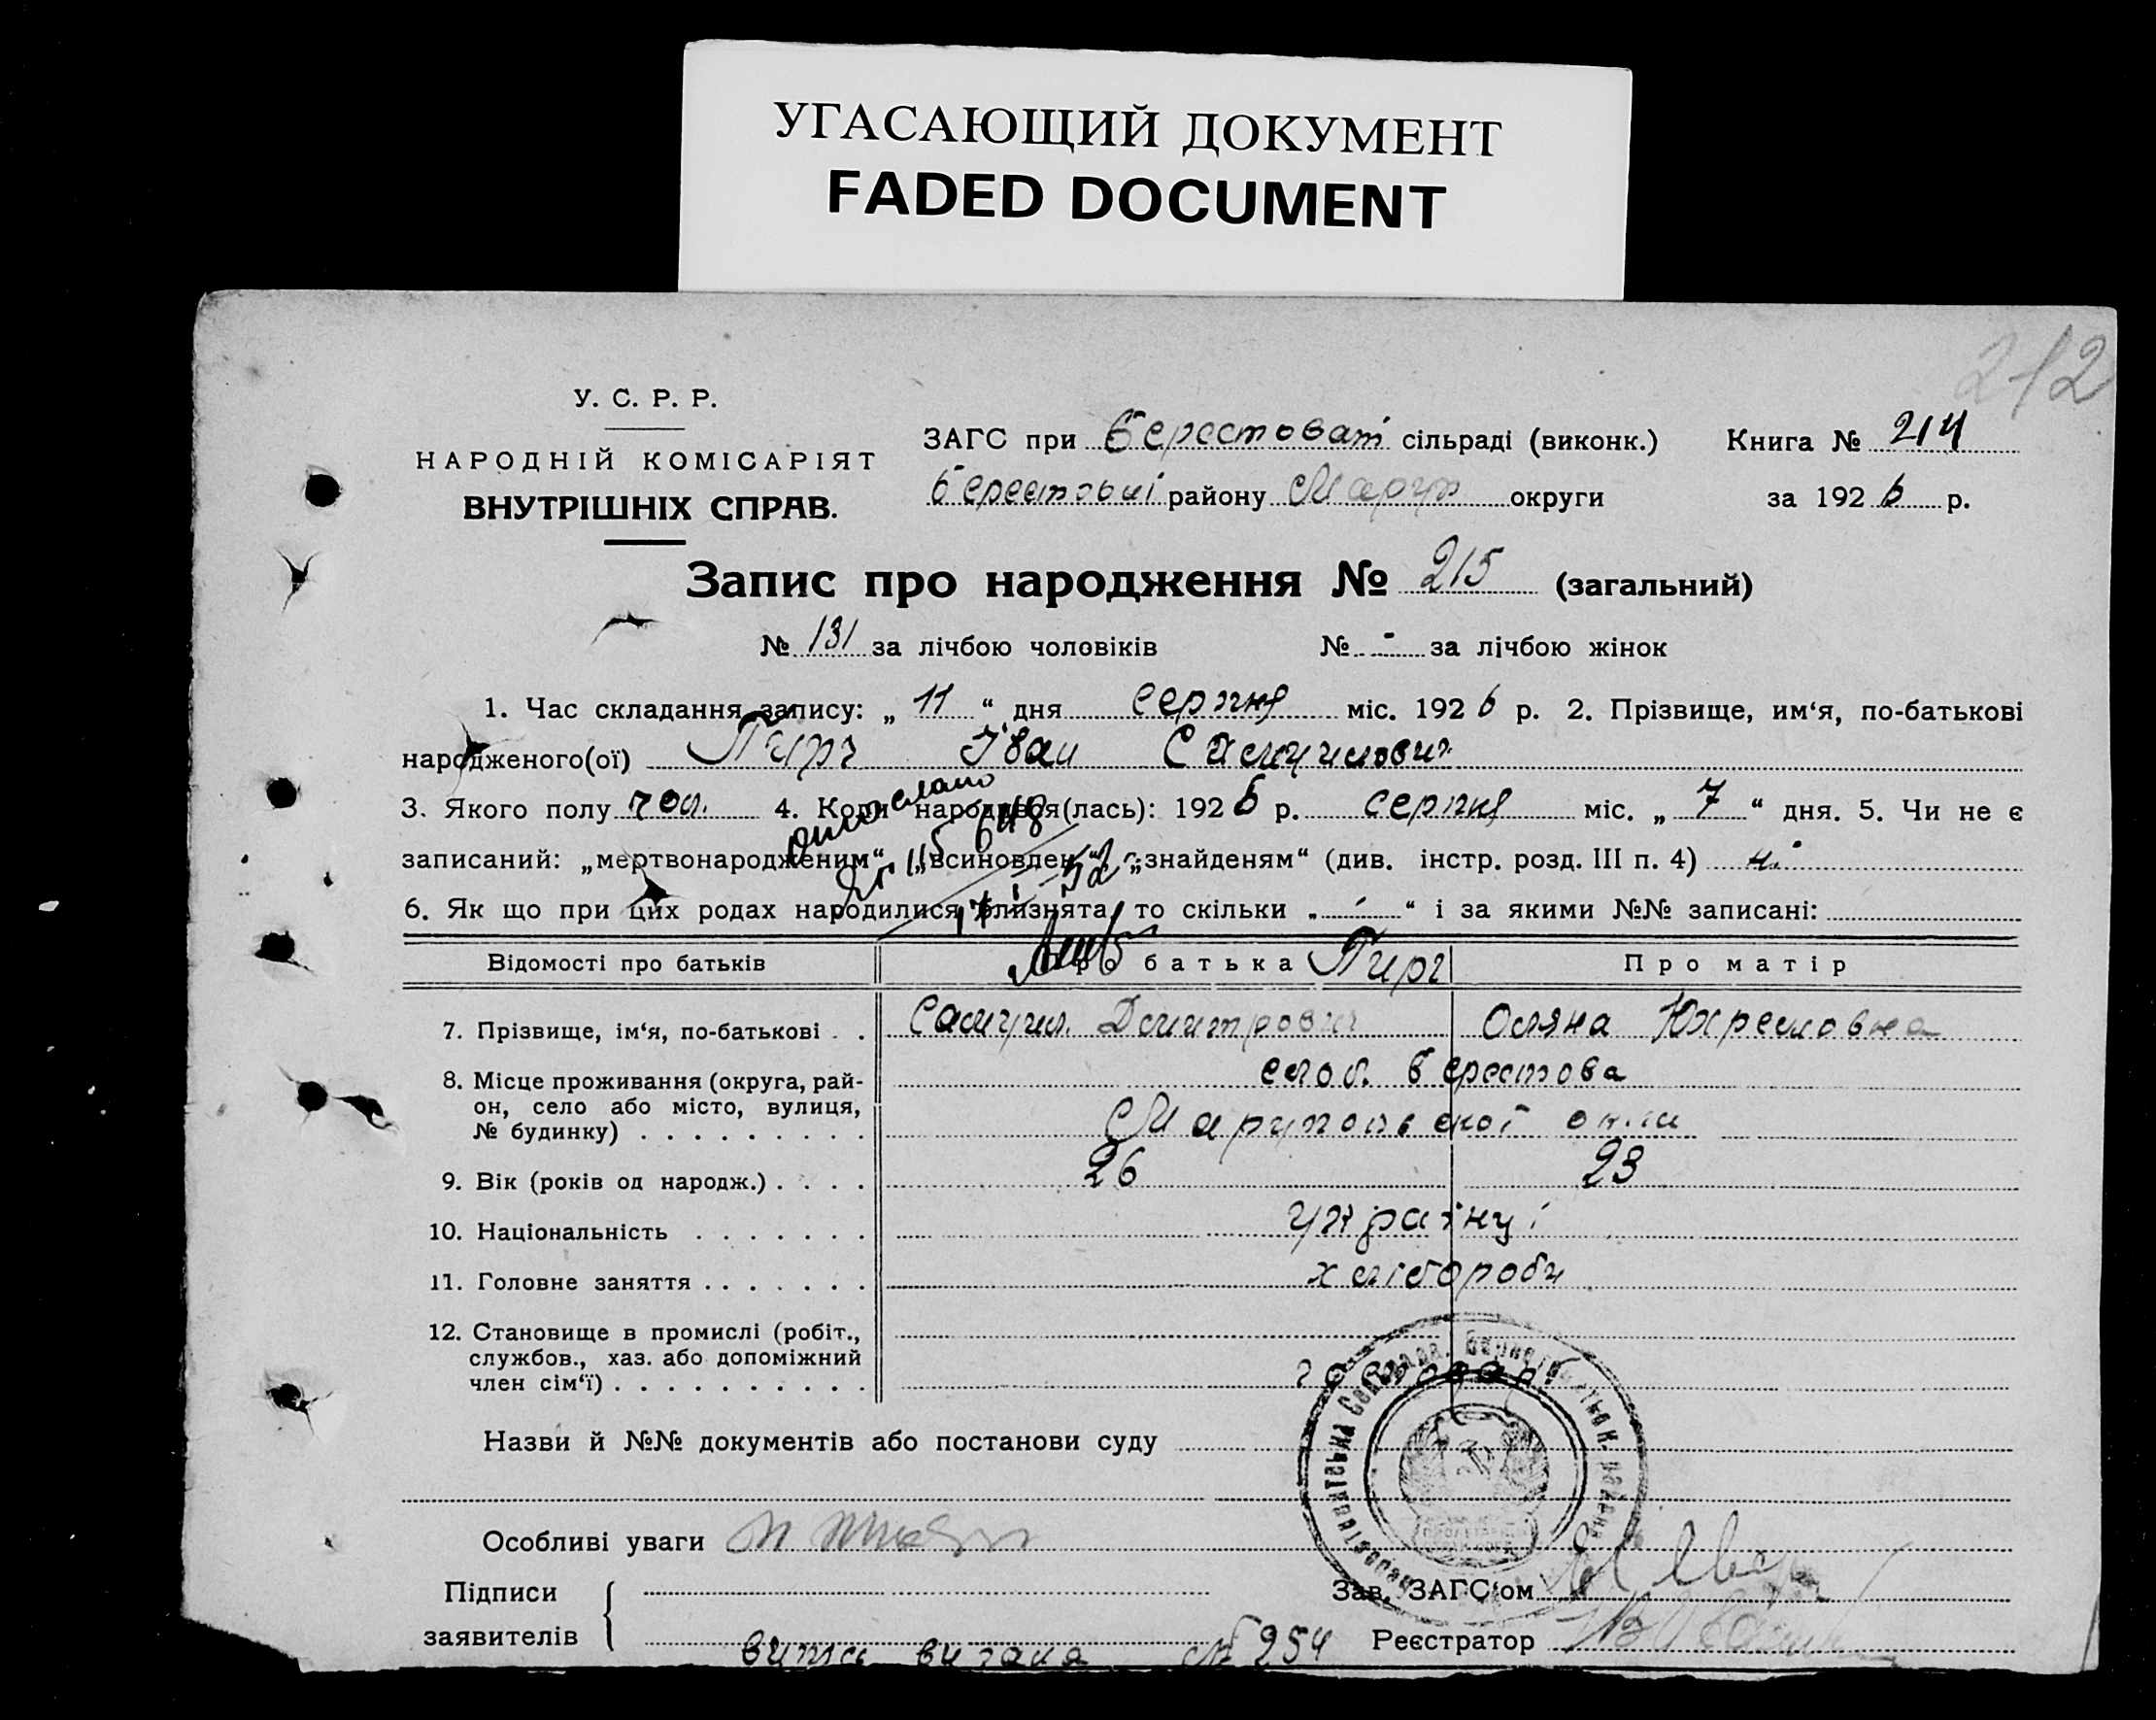 УГАСАЮЩИЙ ДОКУМЕНТ
FADED DOCUMENT
212
У. С. Р. Р.
НАРОДНІЙ КОМІСАРІЯТ
ВНУТРІШНІХ СПРАВ.
ЗАГС при Берестоваті сільраді (виконк.) Книга № 214
району Маруп округи за 192 6 р.
Запис про народження № 215 (загальний)
№ 131 за лічбою чоловіків № - за лічбою жінок
1. Час складання запису: „ 11 “ дня серпня міс. 192 6 р. 2. Прізвище, им‘я, по-батькові
народженого(ої) Пирг Іван Самуилович
3. Якого полу чол. 4. Коли народився(лась): 192 6 р. серпня міс. „ 7 “ дня. 5. Чи не є
записаний: „мертвонародженим“, „всиновлен“, „знайденям“ (див. інстр. розд. III п. 4) ні
6. Як що при цих родах народилися близнята, то скільки „ - “ і за якими №№ записані:
Відомості про батьків Про батька Пирг Про матір
7. Прізвище, ім‘я, по-батькові . . Самуил. Дмитрович Оляна
8. Місце проживання (округа, рай-
он, село або місто, вулиця,
№ будинку) . . . . . . . . .
слоб. Берестова
Марупольської окми
9. Вік (років од народж.) . . . . 26 23
10. Національність . . . . . . .
11. Головне заняття . . . . . . . хлібороби
12. Становище в промислі (робіт.,
службов., хаз. або допоміжний
член сім‘ї) . . . . . . . . . .
господарі
Назви й №№ документів або постанови суду
Особливі уваги
Підписи
заявителів
Зав. ЗАГС‘ом
Реєстратор
№ 254